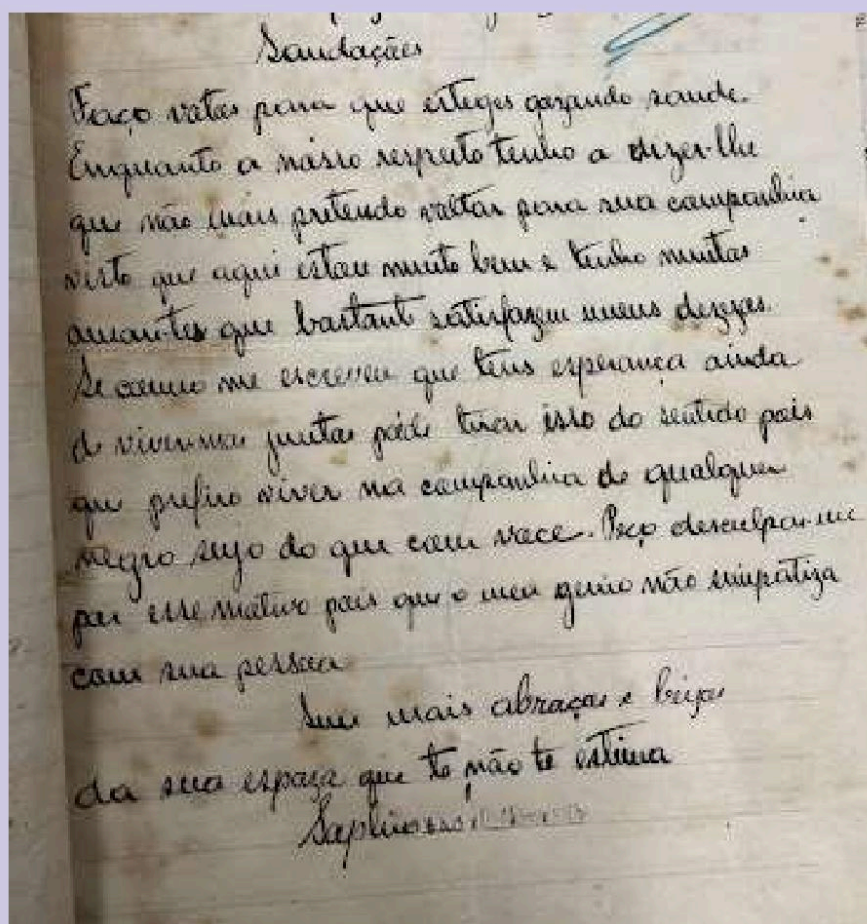 Saudações
Faço votos para que esteges gozando saude.
Emquanto a nosso respeito tenho a dizer-lhe
que não mais pretendo voltar para sua companhia
visto que aqui estou muito bem e tenho muitos
amantes que bastante satisfazem meus dezejos.
Se como me escreveu que tens esperança ainda
de vivermos juntos póde tirar isso do sentido pois
que prefiro viver na companhia de qualquer
negro sujo do que com voce. Peço desculpar-me
por esse motivo pois que o meu genio não simpatiza
com sua pessoa
Sem mais abraços e beijos
da sua espoza que te não te estima